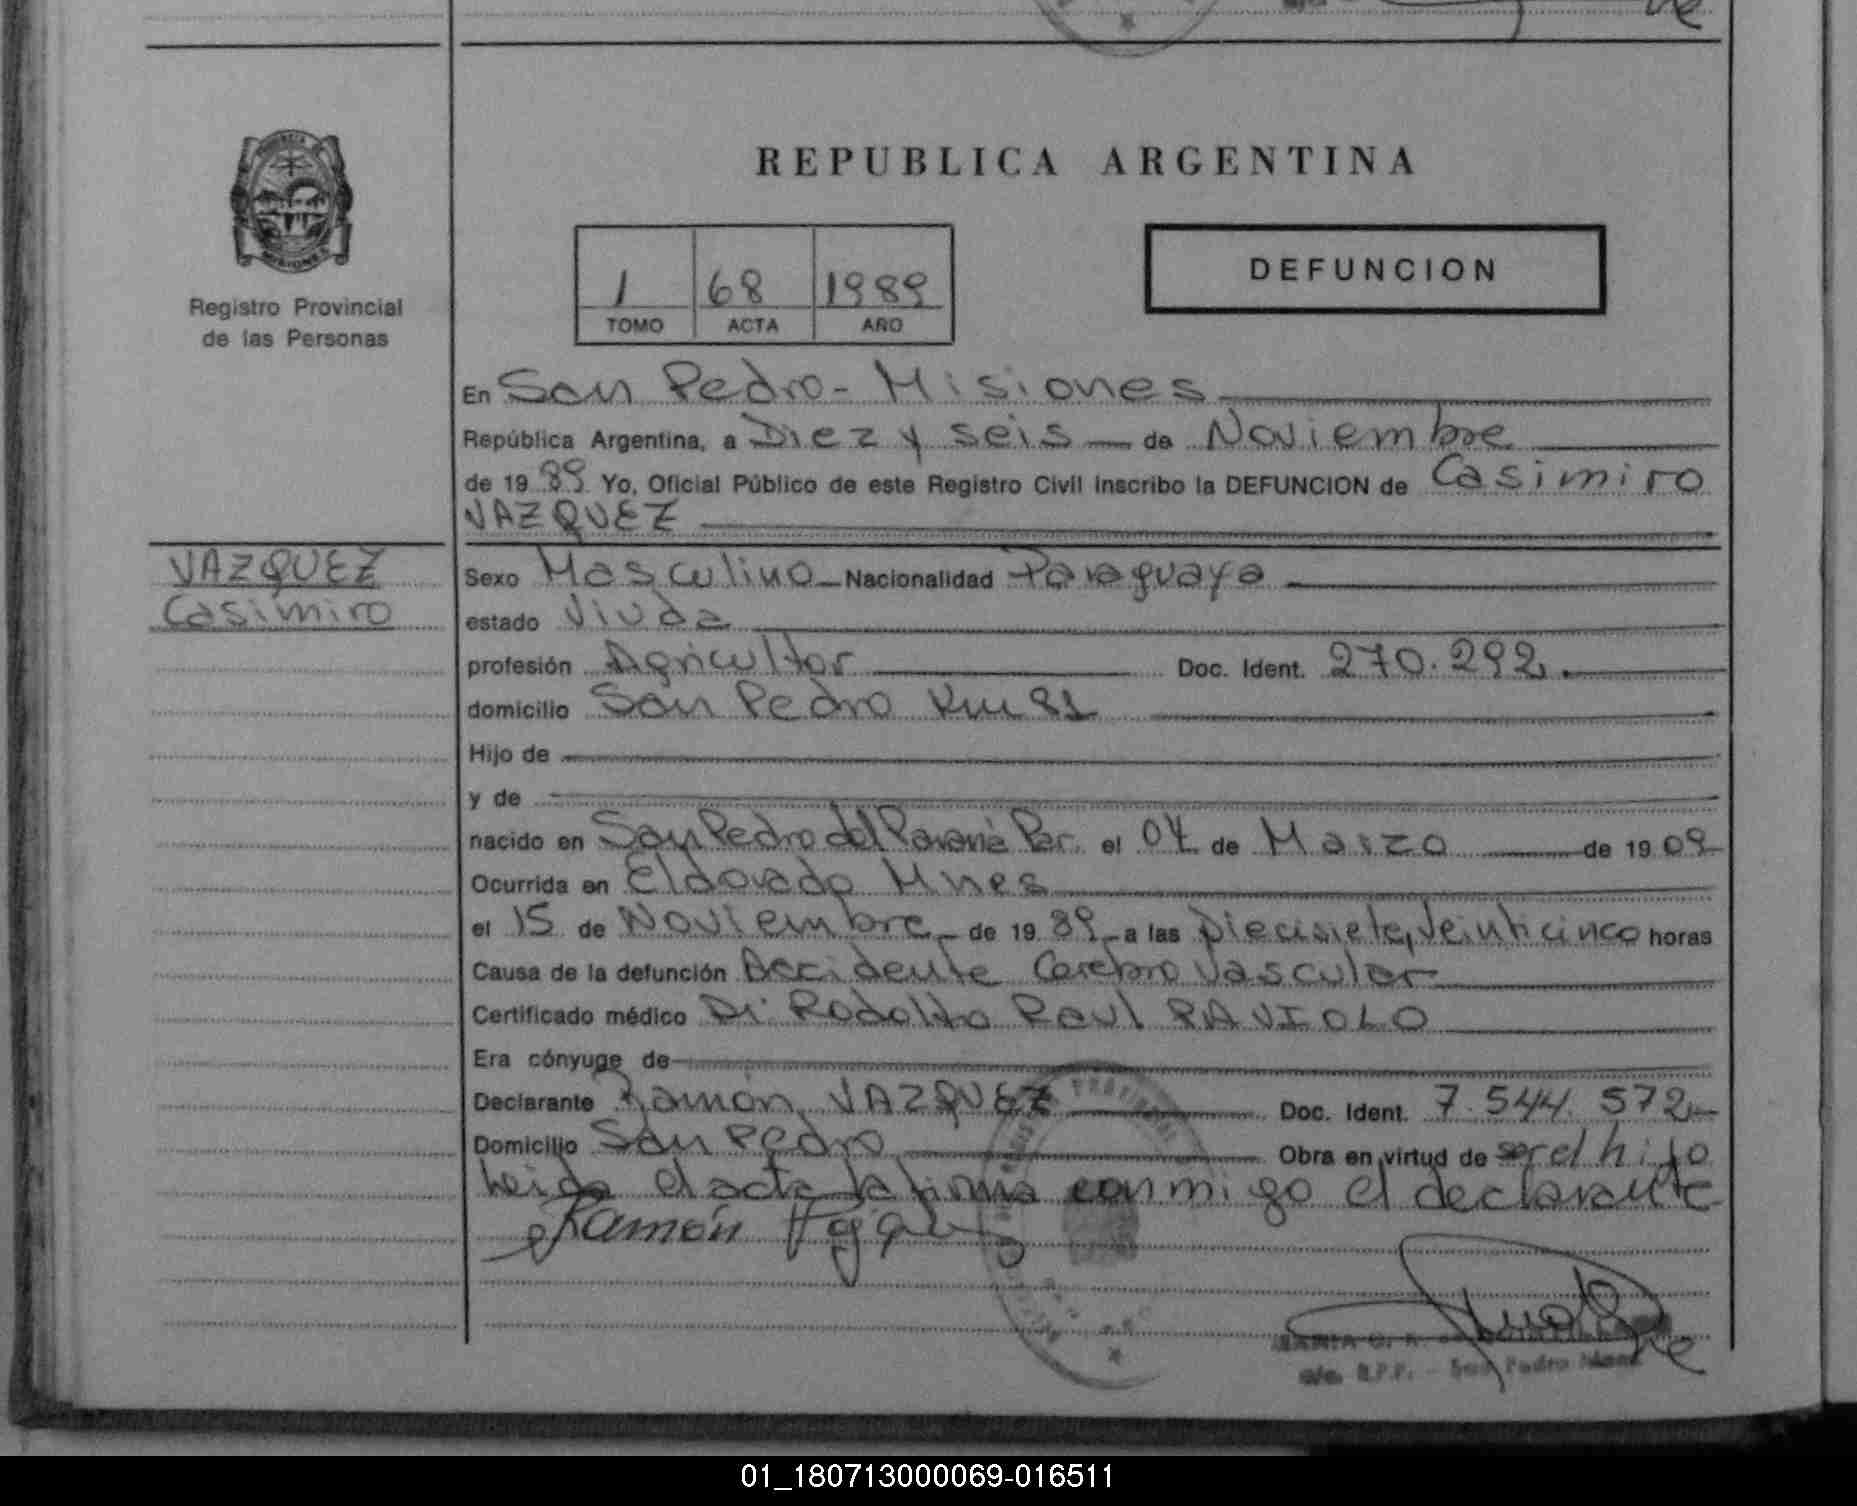 REPUBLICA ARGENTINA
MISIONES
Registro Provincial
de las Personas
1 68 1989
TOMO ACTA AÑO
DEFUNCION
En San Pedro - Misiones
República Argentina, a Diez y seis de Noviembre
de 19 89 Yo, Oficial Público de este Registro Civil inscribo la DEFUNCION de Casimiro
VAZQUEZ
VAZQUEZ
Casimiro
Sexo Masculino Nacionalidad Paraguaya
estado Viuda
profesión Agricultor Doc. Ident. 270.292.
domicilio San Pedro Km 81
Hijo de
y de
nacido en San Pedro del Paraná Par. el 04 de Marzo de 19 09
Ocurrida en Eldorado Mnes
el 15 de Noviembre de 19 89 a las Diecisiete, Veinticinco horas
Causa de la defunción Accidente Cerebro Vascular
Certificado médico Dr. Rodolfo Raul PAVIOLO
Era cónyuge de
Declarante Ramón VAZQUEZ Doc. Ident. 7.544.572
Domicilio San Pedro Obra en virtud de ser el hijo
Leida el acta la firma conmigo el declarante
Ramón
MARIA
R.P.P. - San Pedro
01_180713000069-016511